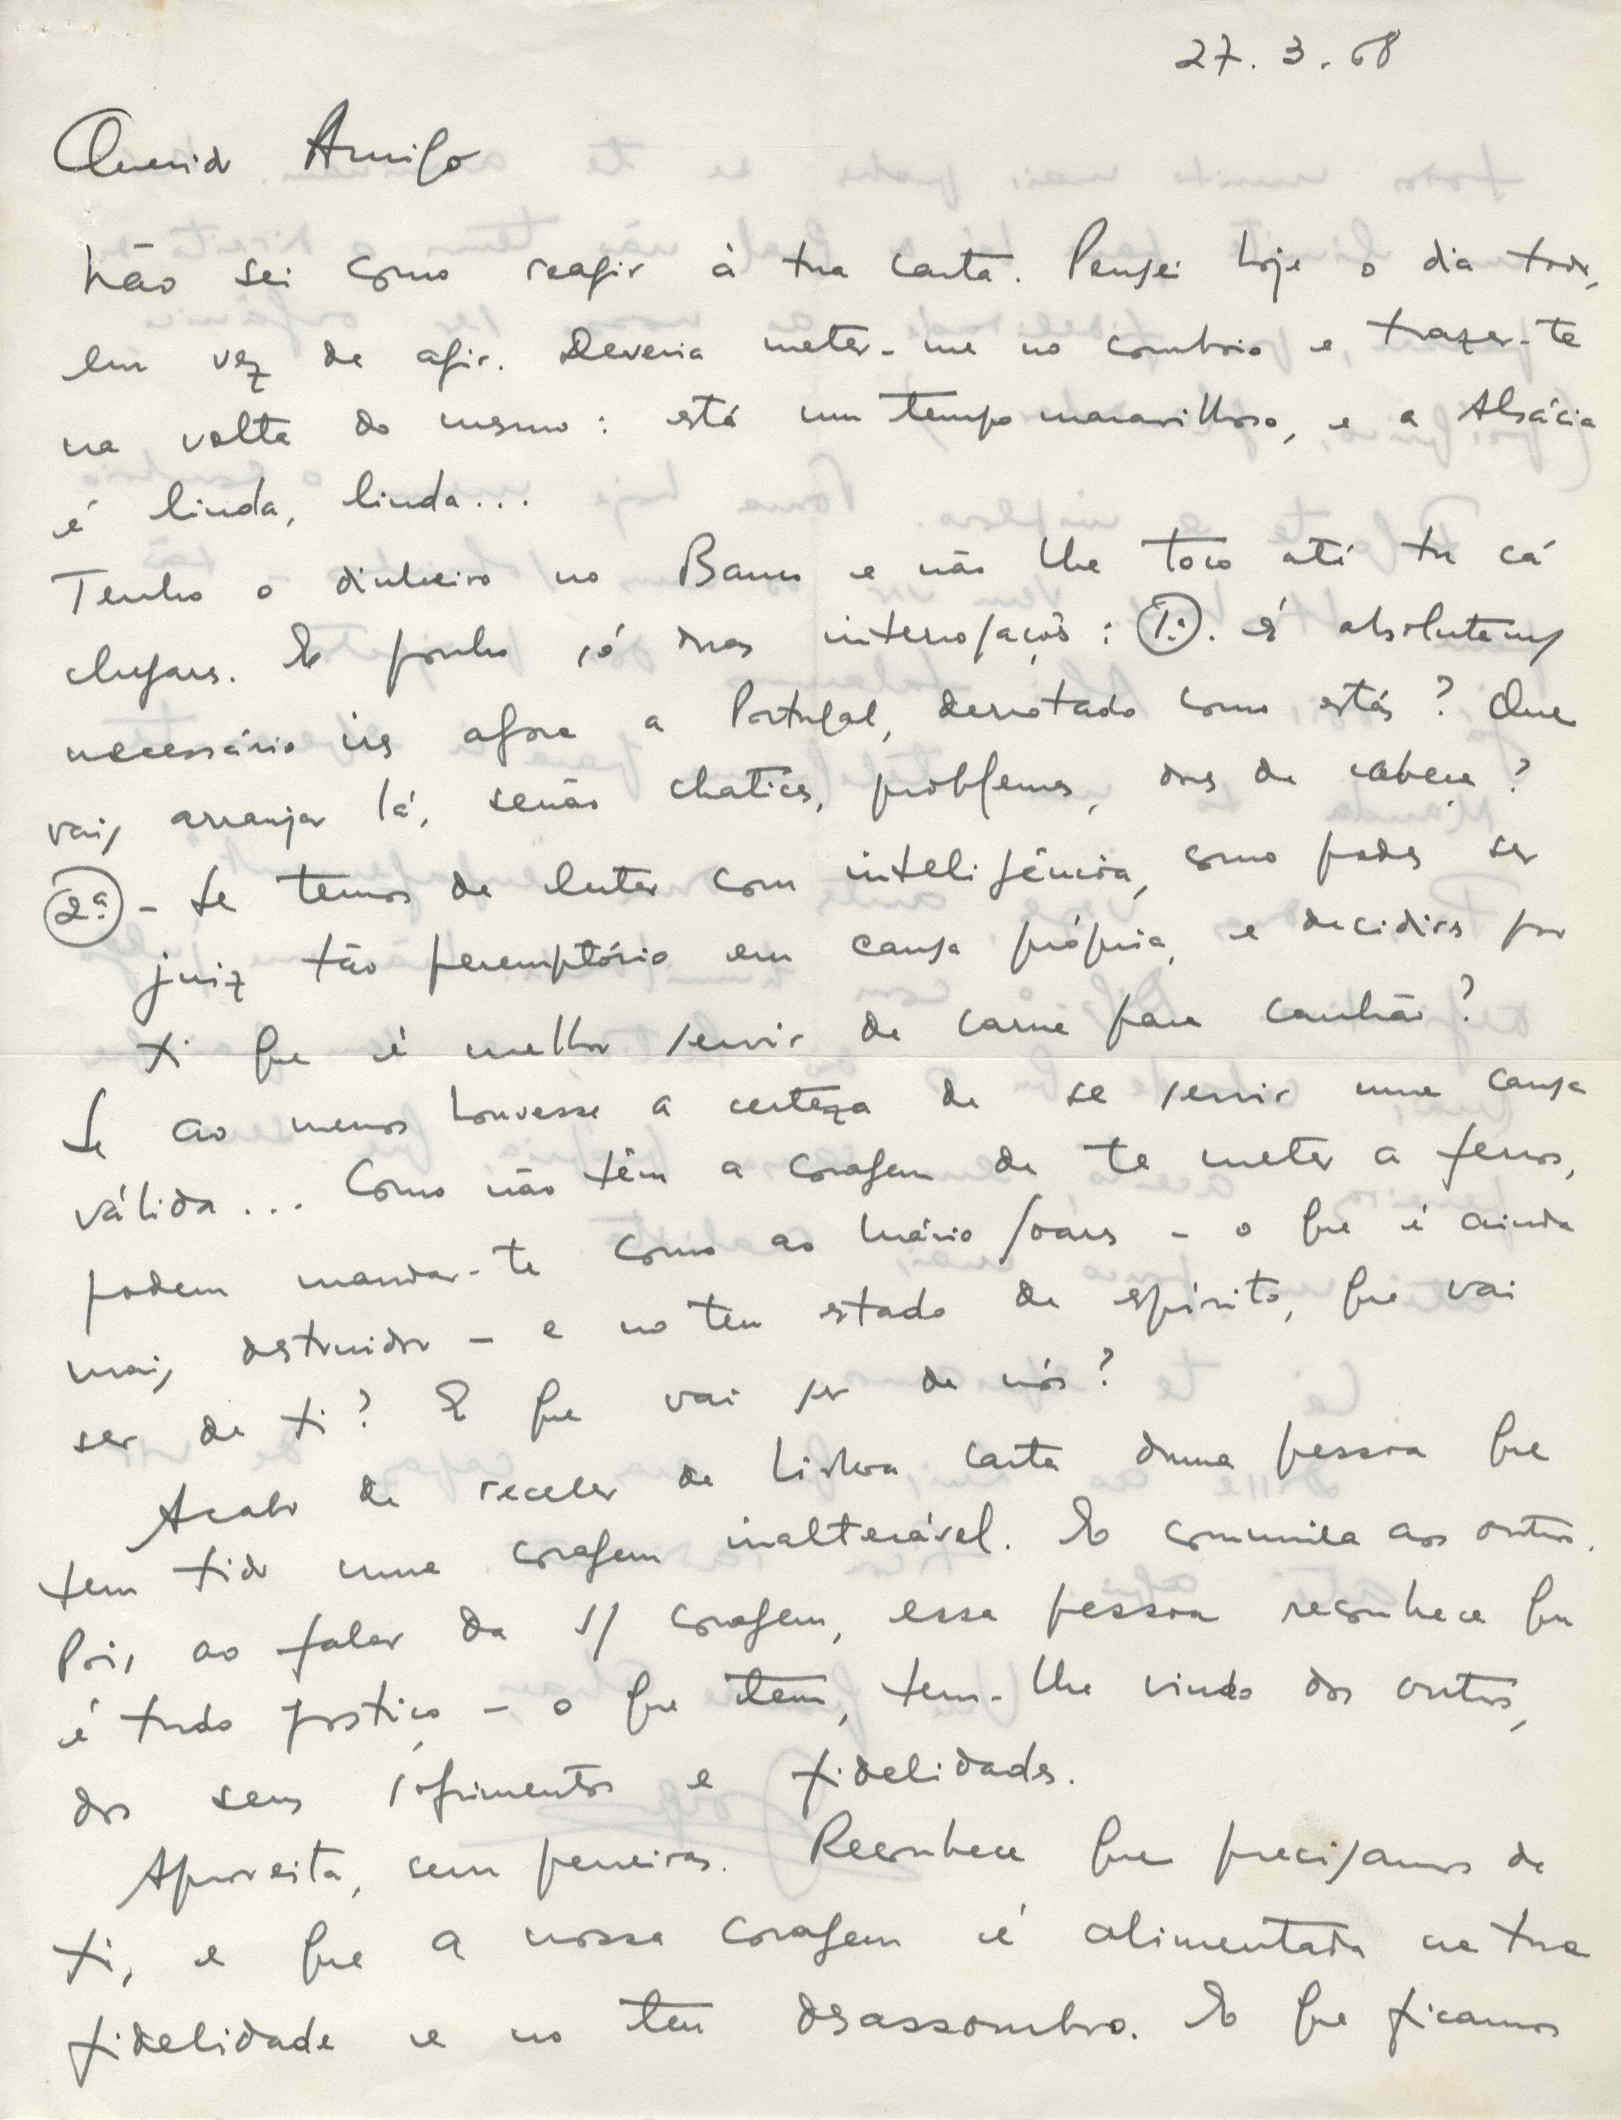 27.3.68
Querido Amigo
Não sei como reagir à tua carta. Pensei hoje o dia todo,
em vez de agir. Deveria meter-me no comboio e trazer-te
na volta do mesmo: está um tempo maravilhoso, e a Alsácia
é linda, linda...
Tenho o dinheiro no Banco e não lhe toco até tu cá
chegares. E ponho só duas interrogações: 1ª. é absolutamente
necessário ires agora a Portugal, derrotado como estás? Que
vais arranjar lá, senão chatices, problemas, dores de cabeça?
2ª - Se temos de lutar com inteligência, como podes ser
juiz tão peremptório em causa própria, e decidires por
ti que é melhor servir de carne para canhão?
Se ao menos houvesse a certeza de se servir uma causa
válida... Como não têm a coragem de te meter a ferros,
podem mandar-te como ao Mário Soares - o que é ainda
mais destruidor - e no teu estado de espírito, que vai
ser de ti? E que vai ser de nós?
Acabo de receber de Lisboa carta duma pessoa que
tem tido uma coragem inalterável. E comunica aos outros.
Pois, ao falar da s/ coragem, essa pessoa reconhece que
é tudo postiço - o que tem, tem-lhe vindo dos outros,
dos seus sofrimentos e fidelidades.
Aproveita, sem peneiras. Reconhece que precisamos de
ti, e que a nossa coragem é alimentada na tua
fidelidade e no teu desassombro. E que ficamos